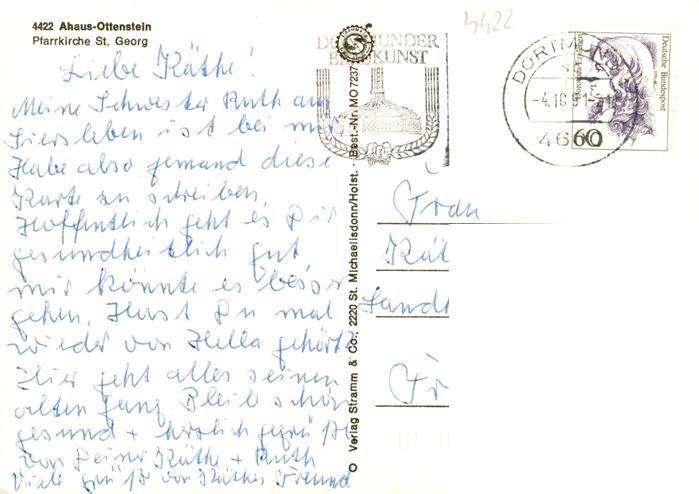 4422 Ahaus-Ottenstein
Pfarrkirche St. Georg
Liebe Käthe!
Meine Schwester Ruth aus
Siersleben ist bei mir
Habe also jemand diese
Karte zu schreiben.
Hoffentlich geht es Dir
gesundheitlich gut
mir könnte es besser
gehen. Hast Du mal
wieder von Hella gehört?
Hier geht alles seinen
alten Gang Bleib schön
gesund + herzlich gegrüßt
von Deiner Käthe + Ruth
Viele Grüße von Käthes Freund
© Verlag Stramm & Co., 2220 St. Michaelisdonn/Holst. · Best.-Nr. MO 7237
DORTMUNDER
BRAUKUNST
4422
DORTM
-4.10.
46
60
Deutsche Bundespost
Frau
Kät
Landt
Fr